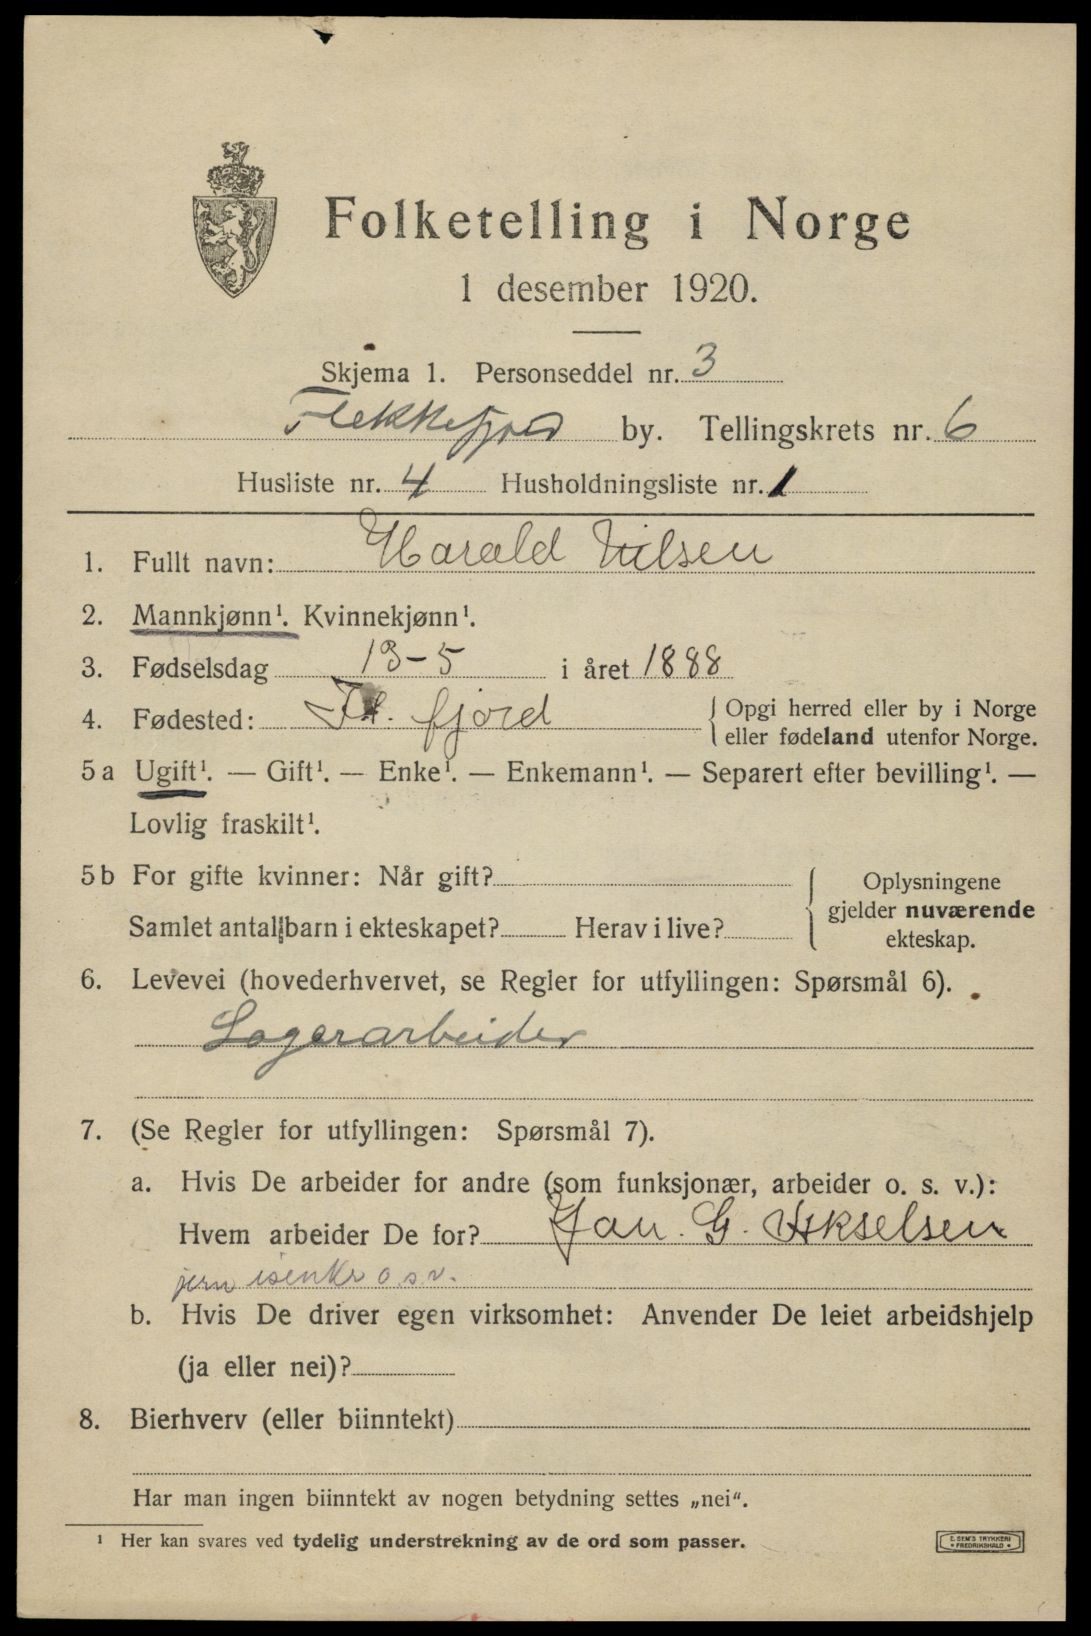 Folketelling i Norge
1 desember 1920.
Skjema 1. Personseddel nr. 3
Flekkefjord by. Tellingskrets nr. 6
Husliste nr. 4 Husholdningsliste nr. 1
1. Fullt navn: Harald Nilsen
2. Mannkjønn¹. Kvinnekjønn¹.
3. Fødselsdag 13-5 i året 1888
4. Fødested: Fl. fjord { Opgi herred eller by i Norge
eller fødeland utenfor Norge.
5 a Ugift¹. — Gift¹. — Enke¹. — Enkemann¹. — Separert efter bevilling¹. —
Lovlig fraskilt¹.
5 b For gifte kvinner: Når gift? { Oplysningene
gjelder nuværende
Samlet antal barn i ekteskapet? Herav i live?
ekteskap.
6. Levevei (hovederhvervet, se Regler for utfyllingen: Spørsmål 6).
Lagerarbeider
7. (Se Regler for utfyllingen: Spørsmål 7).
a. Hvis De arbeider for andre (som funksjonær, arbeider o. s. v.):
Hvem arbeider De for? Jan. G. Akselsen
jern isenkr o.s.v.
b. Hvis De driver egen virksomhet: Anvender De leiet arbeidshjelp
(ja eller nei)?
8. Bierhverv (eller biinntekt)
Har man ingen biinntekt av nogen betydning settes „nei“.
¹ Her kan svares ved tydelig understrekning av de ord som passer.
E. SEM'S TRYKKERI
• FREDRIKSHALD •